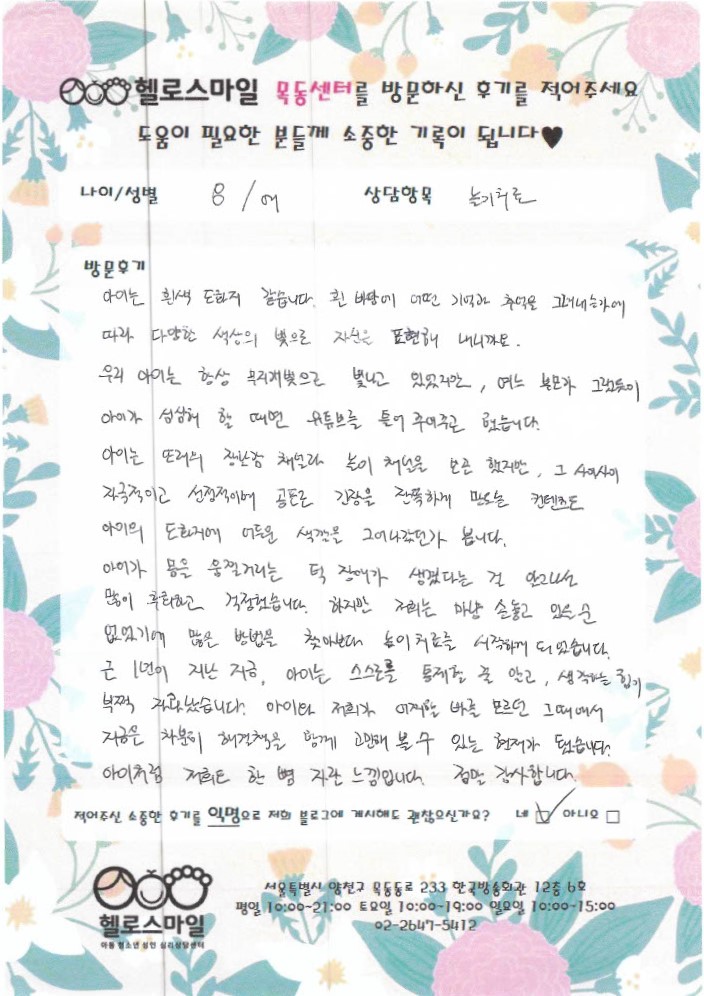 헬로스마일 목동센터를 방문하신 후기를 적어주세요
도움이 필요한 분들께 소중한 기록이 됩니다♥
나이/성별 8 / 여 상담항목 놀이치료
방문후기
아이는 흰색 도화지 같습니다. 흰 바탕에 어떤 기억과 추억을 그려내는가에
따라 다양한 색상의 빛으로 자신을 표현해 내니까요.
우리 아이는 항상 무지개빛으로 빛나고 있었지만, 여느 부모가 그렇듯이
아이가 심심해 할 때면 유튜브를 틀어 주어주곤 했습니다.
아이는 또래의 장난감 채널과 놀이 채널을 보곤 했지만, 그 사이사이
자극적이고 선정적이며 공포로 긴장을 잔뜩하게 만드는 컨텐츠도
아이의 도화지에 어두운 색깔을 그려나갔던가 봅니다.
아이가 몸을 움찔거리는 틱 장애가 생겼다는 걸 알고나서
많이 후회하고 걱정했습니다. 하지만 저희는 마냥 손놓고 있을 순
없었기에 많은 방법을 찾아보다 놀이치료를 시작하게 되었습니다.
근 1년이 지난 지금, 아이는 스스로를 통제할 줄 알고, 생각하는 힘이
부쩍 자라났습니다. 아이와 저희가 어찌할 바를 모르던 그때에서
지금은 차분히 해결책을 함께 고민해 볼 수 있는 현재가 됐습니다.
아이처럼 저희도 한 뼘 자란 느낌입니다. 정말 감사합니다.
적어주신 소중한 후기를 익명으로 저희 블로그에 게시해도 괜찮으신가요? 네 ☑ 아니오 □
헬로스마일
아동 청소년 성인 심리상담센터
서울특별시 양천구 목동동로 233 한국방송회관 12층 6호
평일 10:00-21:00 토요일 10:00-19:00 일요일 10:00-15:00
02-2647-5412